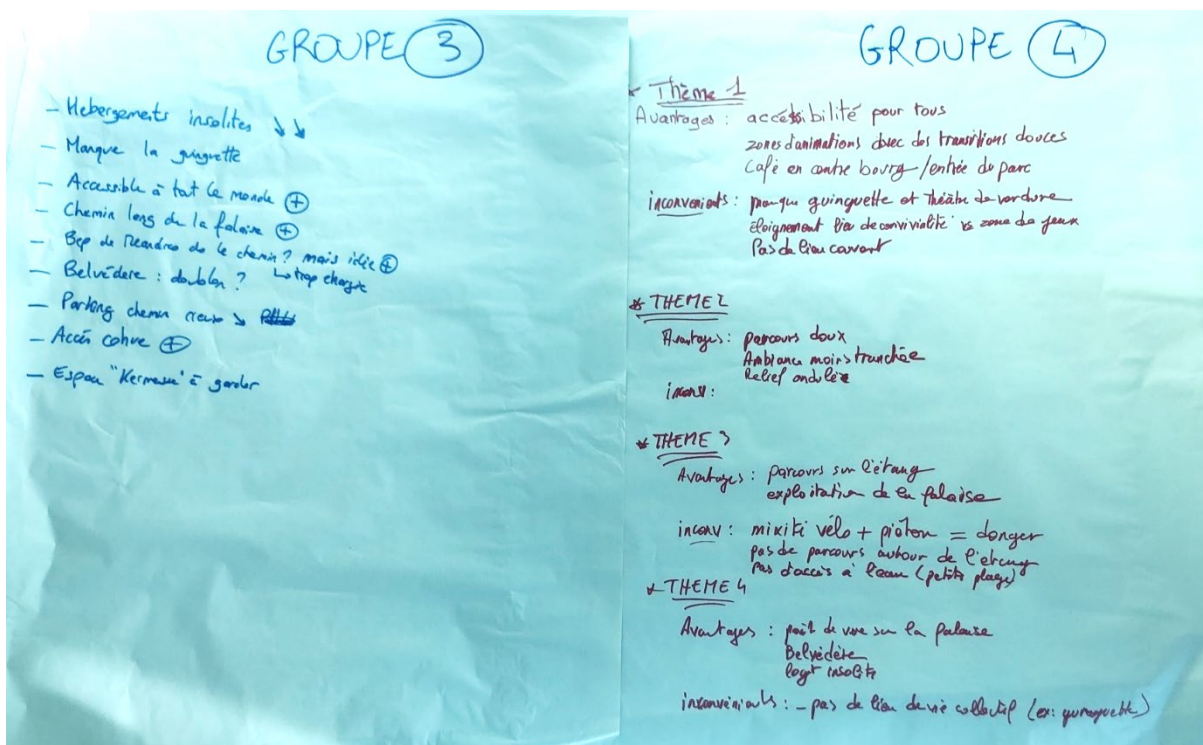 GROUPE 3
- Hebergements insolites ↘↘
- Manque la guinguette
- Accessible à tout le monde ⊕
- Chemin long de la falaise ⊕
- Bcp de méandres de le chemin ? mais idée ⊕
- Belvédere : doublon ? ↳ trop chargé
- Parking chemin creux ↘
- Accès cohue ⊕
- Espace "Kermesse" à garder
GROUPE 4
* Thème 1
Avantages : accéssibilité pour tous
zones d'animations avec des transitions douces
Café en centre bourg / entrée du parc
inconvenients : manque guinguette et théâtre de verdure
éloignement lieu de convivialité vs zone de jeux
Pas de lieu couvert
* THEME 2
Avantages : parcours doux
Ambiance moins tranchée
Relief ondulé
inconv :
* THEME 3
Avantages : parcours sur l'étang
exploitation de la falaise
inconv : mixité vélo + piéton = danger
pas de parcours autour de l'étang
Pas d'accès à l'eau (petite plage)
* THEME 4
Avantages : point de vue sur la falaise
Belvédère
logt insolite
inconvénients : - pas de lieu de vie collectif (ex: guinguette)